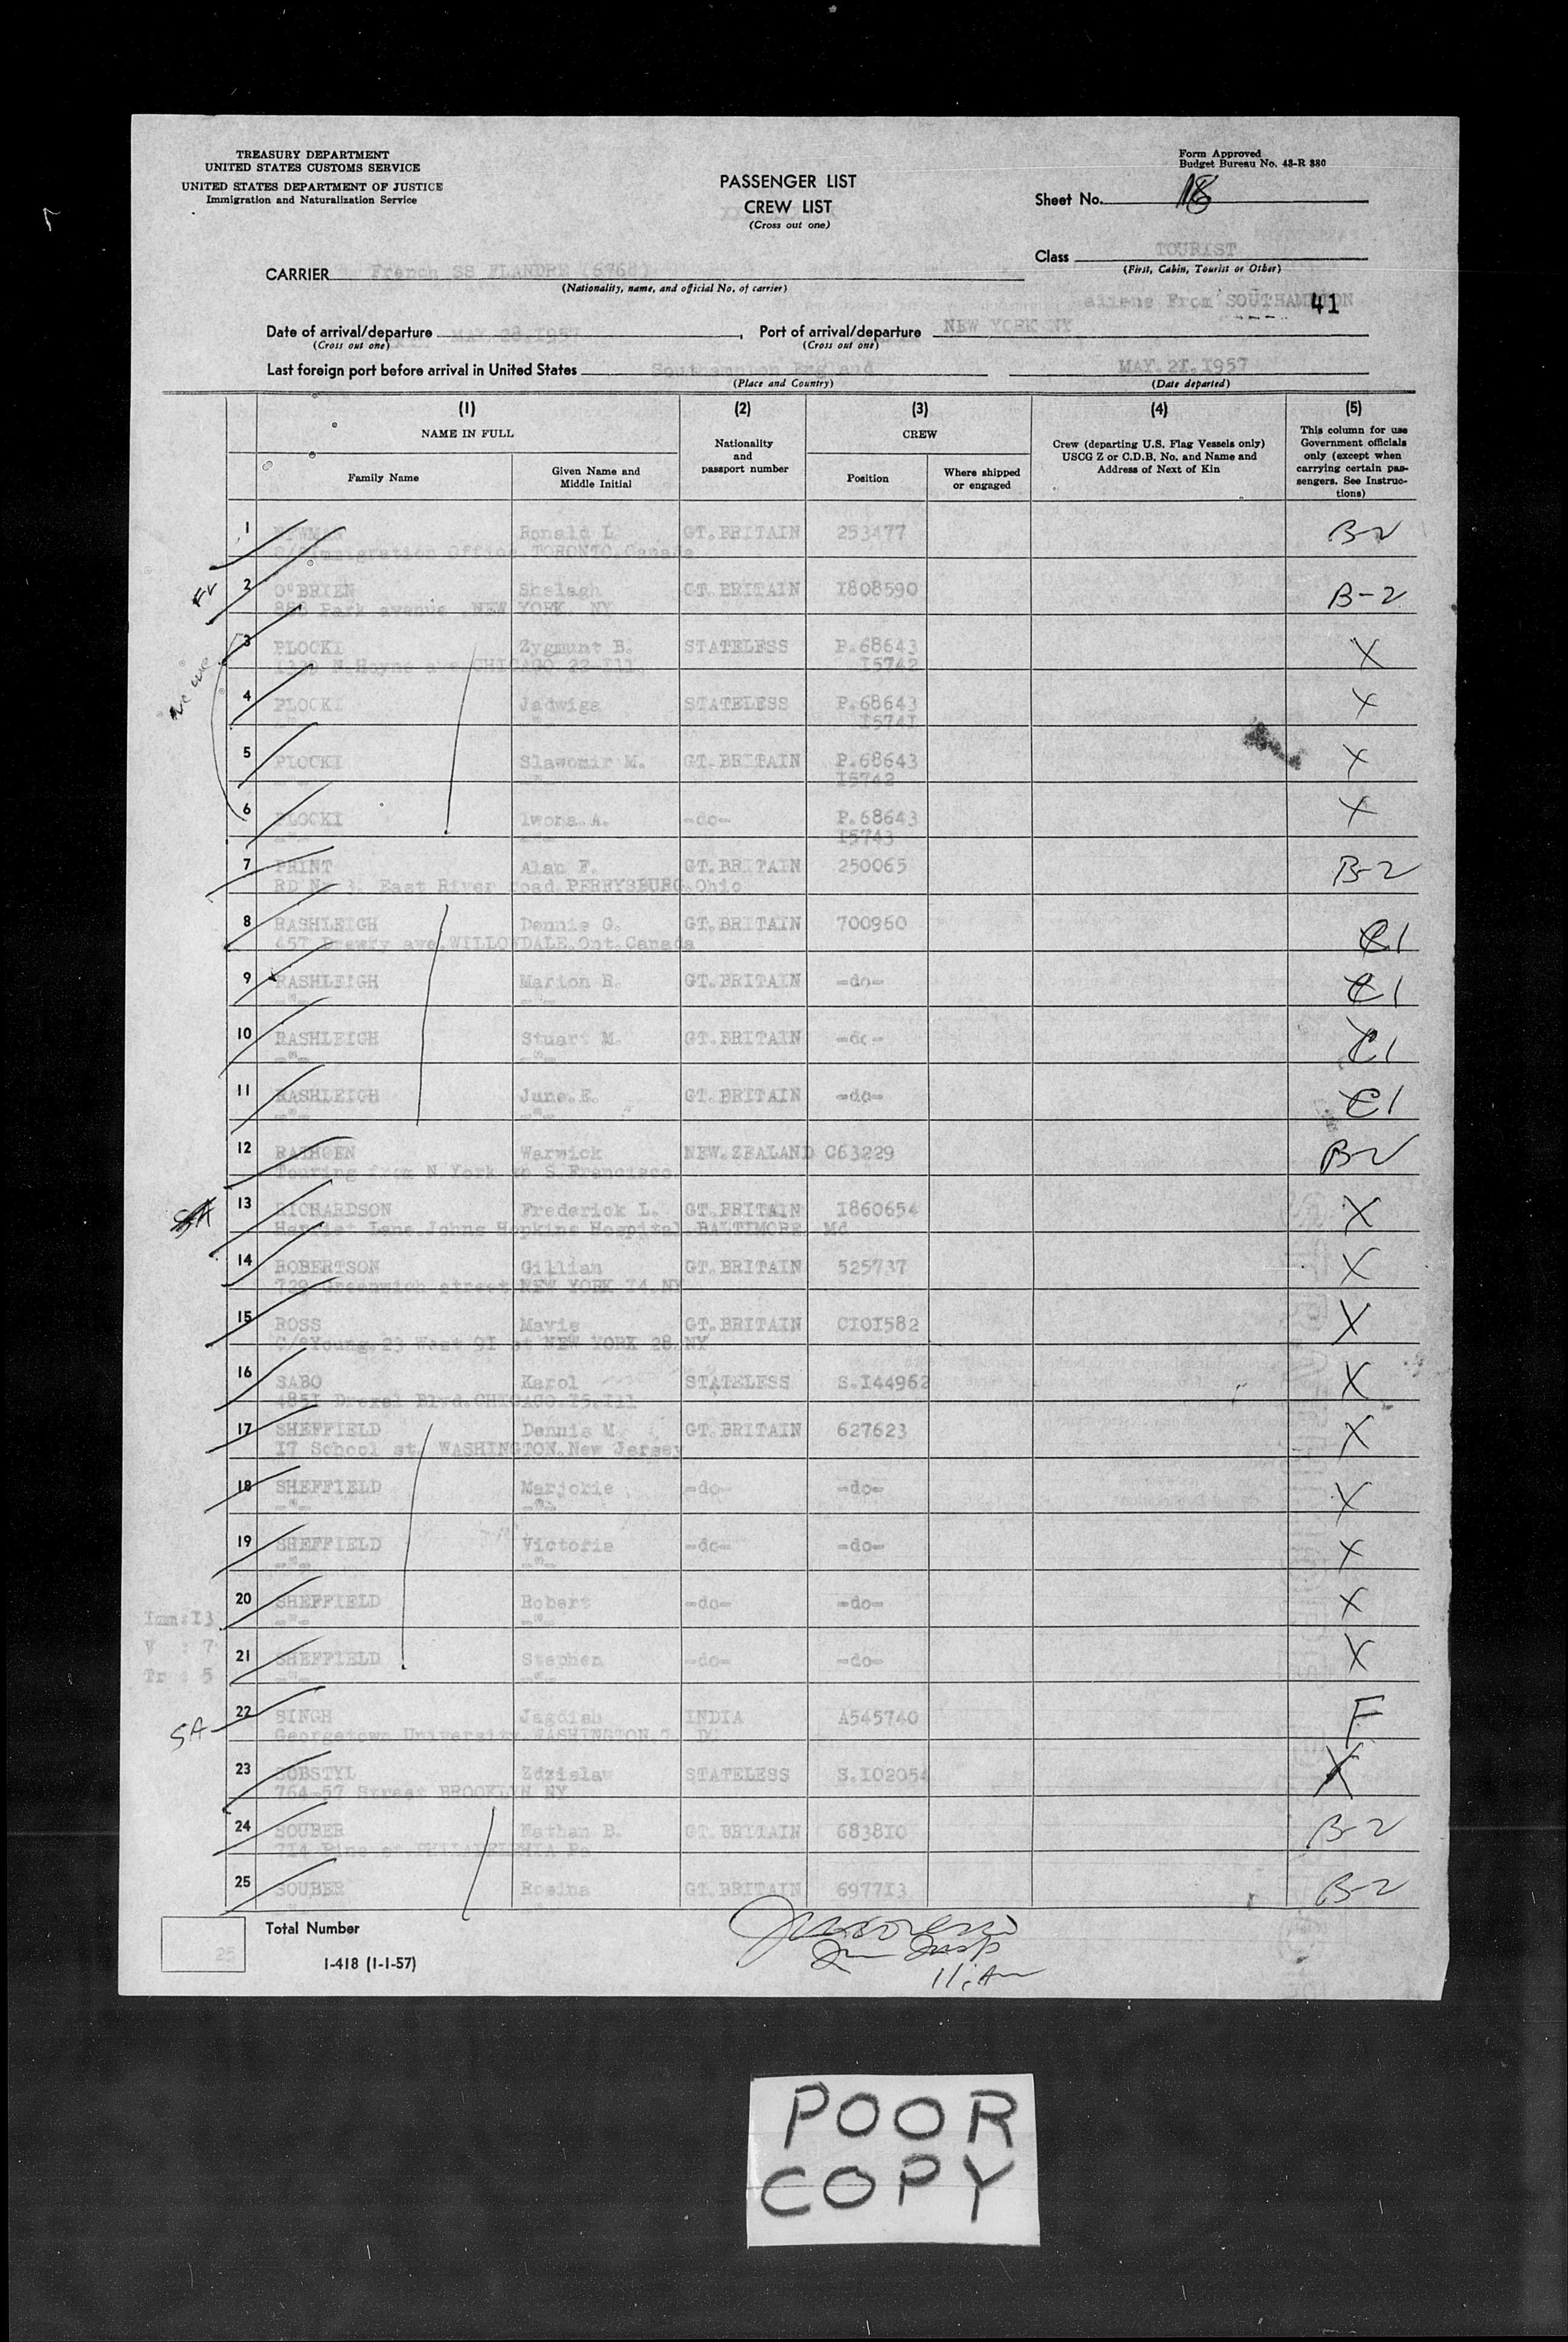 TREASURY DEPARTMENT
UNITED STATES CUSTOMS SERVICE
UNITED STATES DEPARTMENT OF JUSTICE
Immigration and Naturalization Service
PASSENGER LIST
CREW LIST
(Cross out one)
Form Approved
Budget Bureau No. 43-R 380
Sheet No. 18
Class TOURIST
(First, Cabin, Tourist or Other)
CARRIER French SS FLANDRE (6768)
(Nationality, name, and official No. of carrier)
aliens From SOUTHAMPTON
41
Date of arrival/departure MAY 28.1957, Port of arrival/departure NEW YORK NY
(Cross out one) (Cross out one)
Last foreign port before arrival in United States Southampton England MAY.21.1957
(Place and Country) (Date departed)
(1) (2) (3) (4) (5)
NAME IN FULL
Family Name
Given Name and Middle Initial
Nationality and passport number
CREW
Position
Where shipped or engaged
Crew (departing U.S. Flag Vessels only) USCG Z or C.D.B. No. and Name and Address of Next of Kin
This column for use Government officials only (except when carrying certain passengers. See Instructions)
1 NEWMAN Ronald L GT.BRITAIN 253477 B-2
C/O Immigration Office TORONTO.Canada
2 O'BRIEN Shelagh GT.BRITAIN 1808590 B-2
888 Park avenue NEW YORK. NY
3 PLOCKI Zygmunt B. STATELESS P.68643 X
N.Hoyne ave CHICAGO 22-Ill 15742
4 PLOCKI Jadwiga STATELESS P.68643 X
-"- -"- 15741
5 PLOCKI Slawomir M. GT.BRITAIN P.68643 X
-"- -"- 15742
6 PLOCKI Iwona A. -do- P.68643 X
-"- -"- 15743
7 PRINT Alan F. GT.BRITAIN 250065 B-2
RD No 3. East River road.PERRYSBURG.Ohio
8 RASHLEIGH Dennis G. GT.BRITAIN 700960 C1
457 Drewry ave.WILLOWDALE.Ont.Canada
9 RASHLEIGH Marion R. GT.BRITAIN -do- C1
-"- -"-
10 RASHLEIGH Stuart M. GT.BRITAIN -do- C1
-"- -"-
11 RASHLEIGH June.E. GT.BRITAIN -do- C1
-"- -"-
12 Warwick NEW.ZEALAND C63229 B-2
Touring from N York to S.Francisco
SA 13 RICHARDSON Frederick L. GT.BRITAIN 1860654 X
Harriet Lane.Johns Hopkins Hospital.BALTIMORE Md
14 ROBERTSON Gillian GT.BRITAIN 525737 X
729 Greenwich street NEW YORK 14.NY
15 ROSS Mavis GT.BRITAIN C101582 X
C/O Young.23 West 91 st NEW YORK 28.NY
16 SABO Karol STATELESS S.144962 X
4851 Drexel Blvd.CHICAGO.15.Ill
17 SHEFFIELD Dennis M. GT.BRITAIN 627623 X
17 School st. WASHINGTON.New Jersey
18 SHEFFIELD Marjorie -do- -do- X
-"- -"-
19 SHEFFIELD Victoria -do- -do- X
-"- -"-
20 SHEFFIELD Robert -do- -do- X
-"- -"-
Imm:13
V : 7
Tr : 5
21 SHEFFIELD Stephen -do- -do- X
-"- -"-
SA 22 SINGH Jagdish INDIA A545740 F
Georgetown University.WASHINGTON.7 DC
23 SOBSTYL Zdzislaw STATELESS S.102054 X
764-57 Street BROOKLYN NY
24 SOUBER Nathan B. GT.BRITAIN 683810 B-2
714 Pine st.PHILADELPHIA Pa
25 SOUBER Rosina GT.BRITAIN 697713 B-2
25
Total Number
I-418 (1-1-57)
POOR
COPY